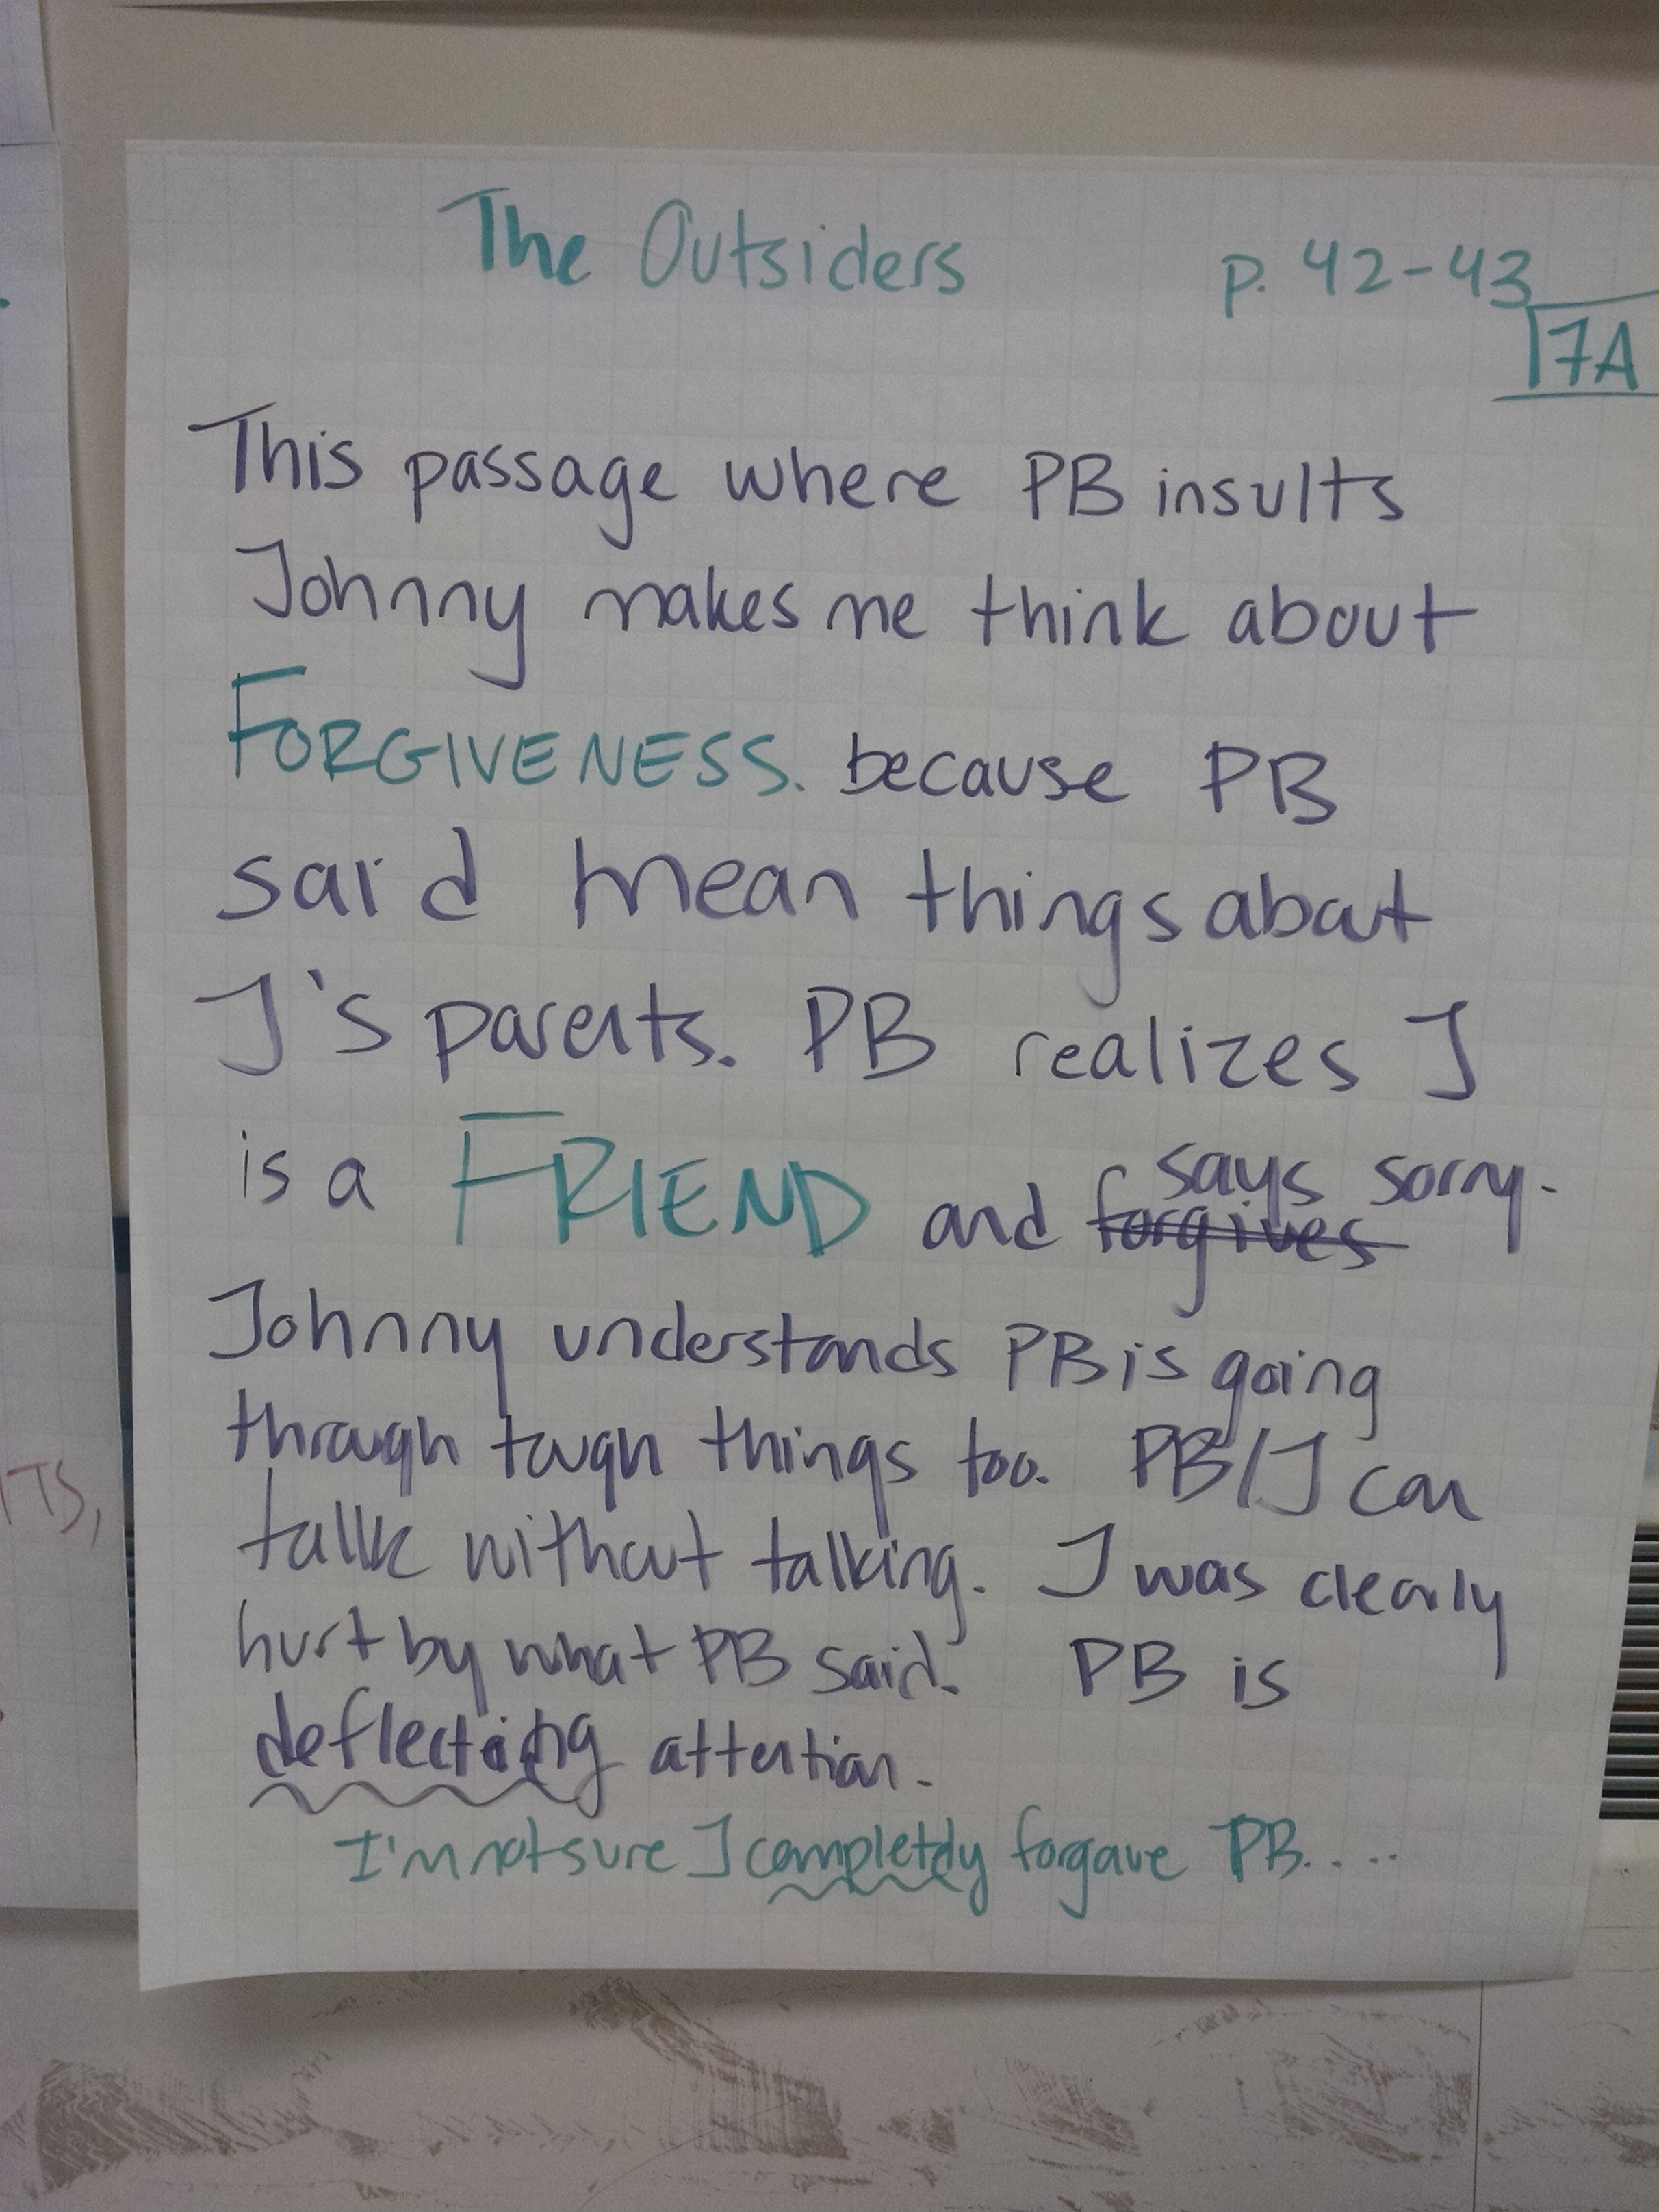 The Outsiders p. 42-43
7A
This passage where PB insults
Johnny makes me think about
FORGIVENESS. because PB
said mean things about
J's parents. PB realizes J
is a FRIEND and forgives says sorry.
Johnny understands PB is going
through tough things too. PB/J can
talk without talking. J was clearly
hurt by what PB said. PB is
deflecting attention.
I'm not sure J completely forgave PB.....
TS,